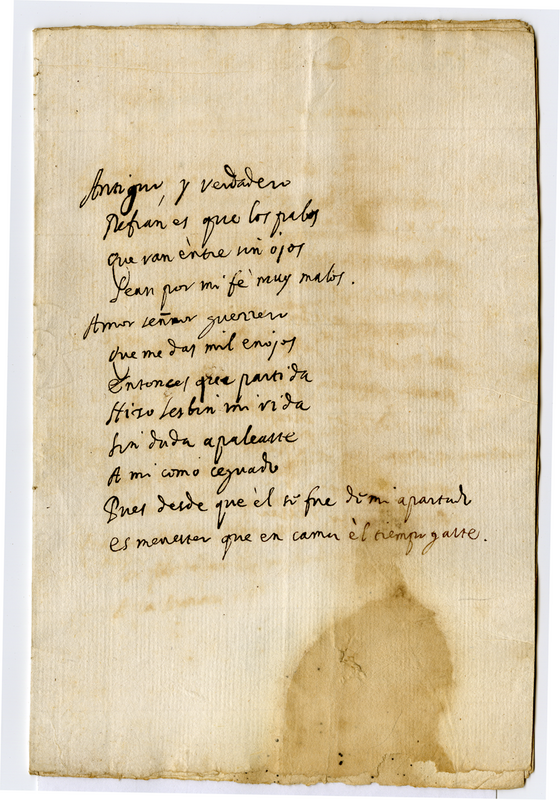 Antiguo, y verdadero
Refrán es que los palos
Que van èntre sin ojos
Sean por mi fè muy malos.
Amor señor guerrero
Que me das mil enojos
Entonces que a partida
Hizo Lesbin mi vida
Sin duda apaleaste
A mi como ceguado
Pues desde que èl se fue de mi apartado
es menester que en cama èl tiempo gaste.